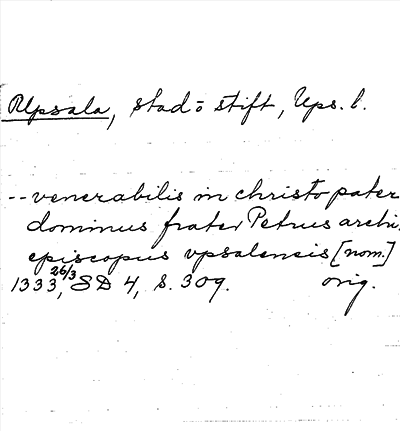 Upsala, stad o stift, Ups. l.
-- venerabilis in christo pater
dominus frater Petrus archi-
episcopus vpsalensis [nom.]
1333 26/3, SD 4, s. 309. orig.